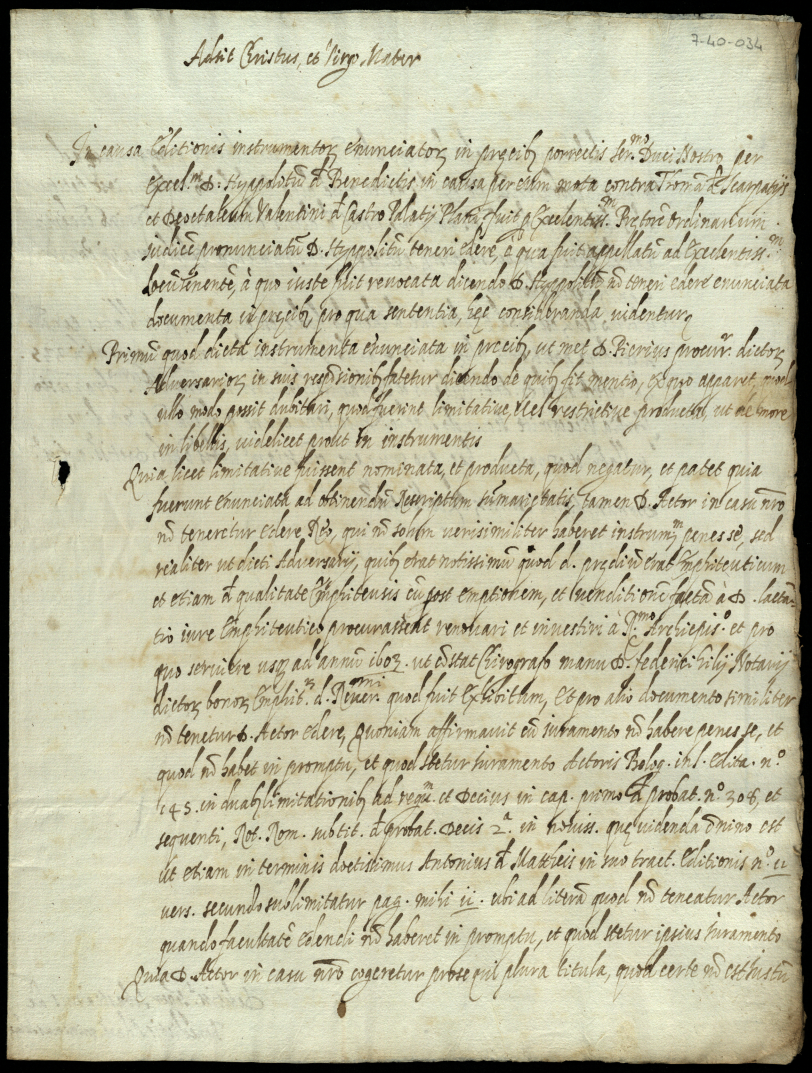 7-40-034
Adsit Christus, et Virgo Mater
In causa Editionis instrumentoꝝ enunciatoꝝ in prȩcibꝫ porrectis Ser.mo Duci Nostro per
Excel.m D. Hyppolitū d Benedictis in causa per eum mota contra
et Deoctaleum Valentini d Castro Palatij Plata fuit p Excelentiss.m Prȩtorē Ordinarium
iudicē pronunciatū D. Hyppolitū teneri edere, à qua fuit appellatū ad Excelentiss.m
Locūtenentē, à quo iuste fuit revocata dicendo D. Hyppolitū nō teneri edere enunciata
documenta in prȩcibꝫ pro qua sententia, hȩc consideranda videntur
Primū quod dicta instrumenta enunciata in prȩcibꝫ, ut met D. Pierius procur.r dictoꝝ
Adversarioꝝ in suis respōsionibꝫ fatetur dicendo de quibꝫ fit mentio, ex quo apparet, quod
ullo modo possit dubitari, quod fuerint limitative, vel restrictive producta, ut de more
in libellis, videlicet prout in instrumentis
Quia licet limitative fuissent nominata, et producta, quod negatur, et patet quia
fuerunt enunciata ad obtinendū Rescriptum sūmarietatis, tamen D. Actor in casu nr̄o
nō teneretur edere Reo, qui nō solum verisimiliter haberet instrum.m penes sè, sed
realiter ut dicti Adversarij, quibꝫ erat notissimū quod d. prȩdiū erat Emphiteuticum
et etiam d qualitate Emphiteusis cū post emptionem, et venditionē factā à D.
iure Emphiteutico procurassent renovari et investiri à R.mo Archiepis.o et pro
quo servivere usqꝫ ad annū 1603. ut cōstat Chirografo manu D. federici Notarij
dictoꝝ bonoꝝ Emphit. d. Rever.mi quod fuit exhibitum, Et pro alio documento similiter
nō tenetur D. Actor edere, Quoniam affirmavit cū iuramento nō habere penes se, et
quod nō habet in promptu, et quod stetur iuramento Actoris Bolog. in l. edita. n.o
145. in duabꝫ limitationibꝫ ad regu. et Decius in cap. primo d probat. n.o 308, et
sequenti, Rot. Rom. subtit. d probat. Decis 2.a in noviss. quȩ videnda ōnino est
Ut etiam in terminis doctissimus Antonius d Mattheis in suo tract. Editionis n.o 11
vers. secundo sublimitatur pag. mihi 11. ubi ad literā quod nō teneatur Actor
quando facultatē edendi nō haberet in promptu, et quod stetur ipsius iuramento
Quia D. Actor in casu nr̄o cogeretur prosequi plura titula, quod certe nō est iustū